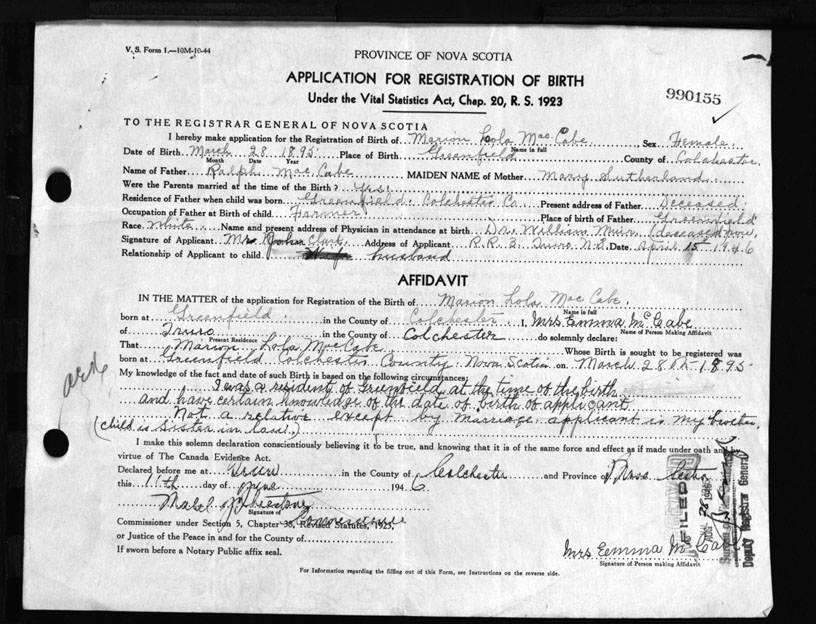 V. S. Form 1.—10M-10-44
PROVINCE OF NOVA SCOTIA
APPLICATION FOR REGISTRATION OF BIRTH
Under the Vital Statistics Act, Chap. 20, R. S. 1923
990155
TO THE REGISTRAR GENERAL OF NOVA SCOTIA
I hereby make application for the Registration of Birth of Marion Lola Mac Cabe Sex Female
Name in full
Date of Birth March 28 1895 Place of Birth Greenfield County of Colchester
Month Date Year
Name of Father Ralph Mac Cabe MAIDEN NAME of Mother Mary Sutherland
Were the Parents married at the time of the Birth? Yes
Residence of Father when child was born Greenfield Colchester Co. Present address of Father Deceased
Occupation of Father at Birth of child Farmer Place of birth of Father Greenfield
Race White Name and present address of Physician in attendance at birth Dr. William Muir (deceased now)
Signature of Applicant Mrs John Clark Address of Applicant R.R. 3. Truro N.S. Date April 15 1946
Relationship of Applicant to child husband
AFFIDAVIT
IN THE MATTER of the application for Registration of the Birth of Marion Lola Mac Cabe
Name in full
born at Greenfield in the County of Colchester I, Mrs Emma McCabe
Name of Person Making Affidavit
of Truro in the County of Colchester do solemnly declare:
Present Residence
That Marion Lola Mac Cabe Whose Birth is sought to be registered was
born at Greenfield Colchester County Nova Scotia on March 28th 1895
My knowledge of the fact and date of such Birth is based on the following circumstances:
I was a resident of Greenfield at the time of the birth
and have certain knowledge of the date of birth of applicant
Not a relative except by marriage, applicant is my
(child is Sister in law.)
I make this solemn declaration conscientiously believing it to be true, and knowing that it is of the same force and effect as if made under oath and by
virtue of The Canada Evidence Act.
Declared before me at Truro in the County of Colchester and Province of Nova Scotia
this 11th day of June 1946
Mabel
Signature of
Commissioner under Section 5, Chapter 38, Revised Statutes, 1923,
or Justice of the Peace in and for the County of
If sworn before a Notary Public affix seal.
Mrs Emma McCabe
Signature of Person making Affidavit
For Information regarding the filling out of this Form, see Instructions on the reverse side.
FILED
Deputy Registrar General